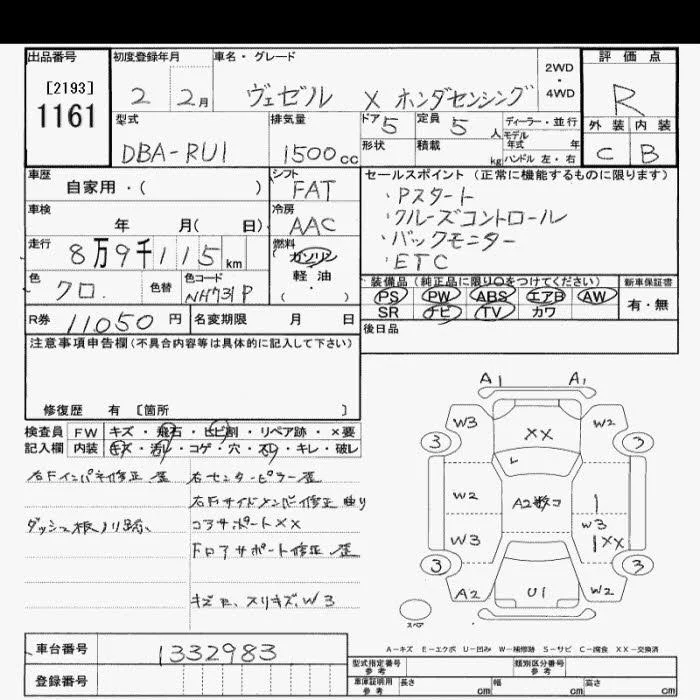 出品番号 初度登録年月 車名・グレード 2WD・4WD 評価点
[2193]
1161
2 2月 ヴェゼル X ホンダセンシング R
型式 排気量 ドア 5 定員 5人 ディーラー・並行 外装 内装
モデル年式 年
DBA-RU1 1500cc 形状 積載 kg ハンドル 左・右 C B
車歴 シフト セールスポイント (正常に機能するものに限ります)
自家用・( ) FAT ・Pスタート
車検 冷房 ・クルーズコントロール
年 月( 日) AAC ・バックモニター
走行 燃料 ・ETC
8万9千115km ガソリン
軽・油
( ・ )
色 色替 色コード 装備品 (純正品に限り○をつけてください) 新車保証書
クロ NH731P PS PW ABS エアB AW 有・無
SR ナビ TV カワ
R券 11050円 名変期限 月 日 後日品
注意事項申告欄(不具合内容等は具体的に記入して下さい)
修復歴 有 [箇所 ]
検査員 FW キズ・飛石・ヒビ割・リペア跡・×要
記入欄 内装 キズ・汚レ・コゲ・穴・スレ・キレ・破レ
右Fインパネ修正 歪 右センターピラー歪
右Fサイドメンバー修正 曲り
コアサポートXX
Fロアサポート修正 歪
スリキズ、W3
A1 A1
W3 W2
3 XX 3
W2 A2数コ 1
W3 W3
1XX
3 3
A2 U1 W2
スペア
A-キズ E-エクボ U-凹み W-補修跡 S-サビ C-腐食 XX-交換済
車台番号 1332983
登録番号
型式指定番号 参考 類別区分番号 参考
車庫証明用 参考 長さ cm 幅 cm 高さ cm